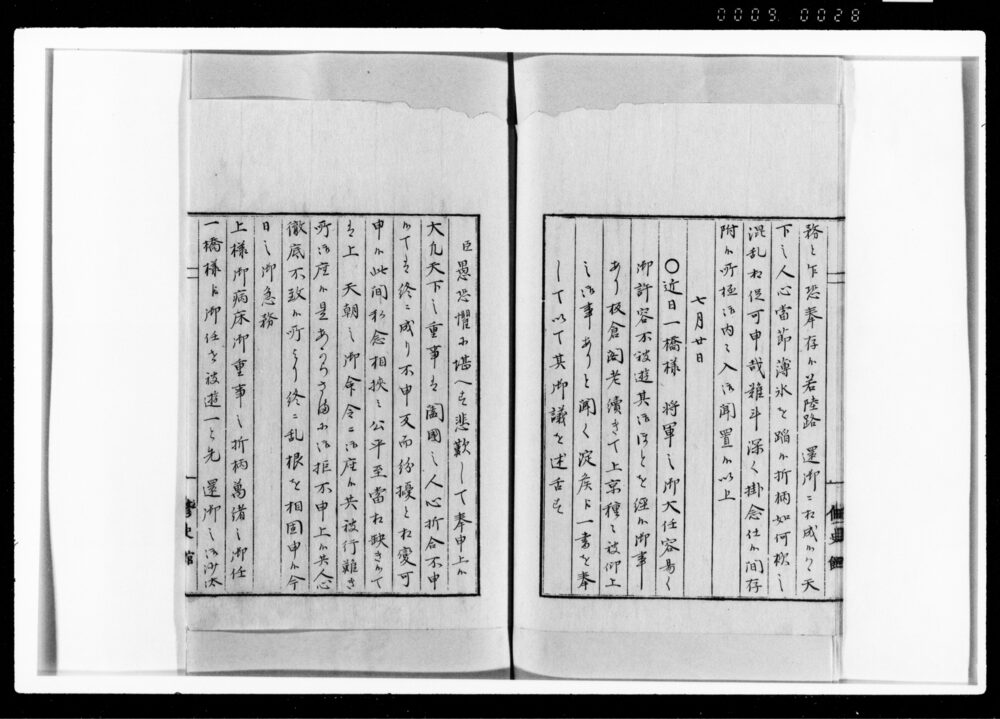 0009 0028
務と乍恐奉存候若陸路 還御ニ相成候ハヽ天
下之人心當節薄氷を踏候折柄如何様之
混乱相促可申哉難斗深く掛念仕候間存
附候所極御内々入御聞置候以上
七月廿日
〇近日一橋様 將軍之御大任容易く
御許容不被遊其御ほとを經候御事
あり板倉閣老續きて上京種々被仰上
之御事ありと聞く淀侯よ一書を奉
して以て其御議を述舌す
修史館
臣愚恐懼に堪へす悲歎して奉申上候
大凡天下之重事は闔國之人心折合不申
候ては終ニ成り不申又而紛擾と相變可
申候此間私念相挾之公平至當相缺き候て
は上 天朝之御命令ニ御座候共被行難き
所御座候是あからさまに御拒不申上候共人心
徹底不致候所より終ニ乱根を相固申候今
日之御急務
上様御病床御重事之折柄萬緒之御任
一橋様よ御任せ被遊一と先 還御之御沙汰
修史館